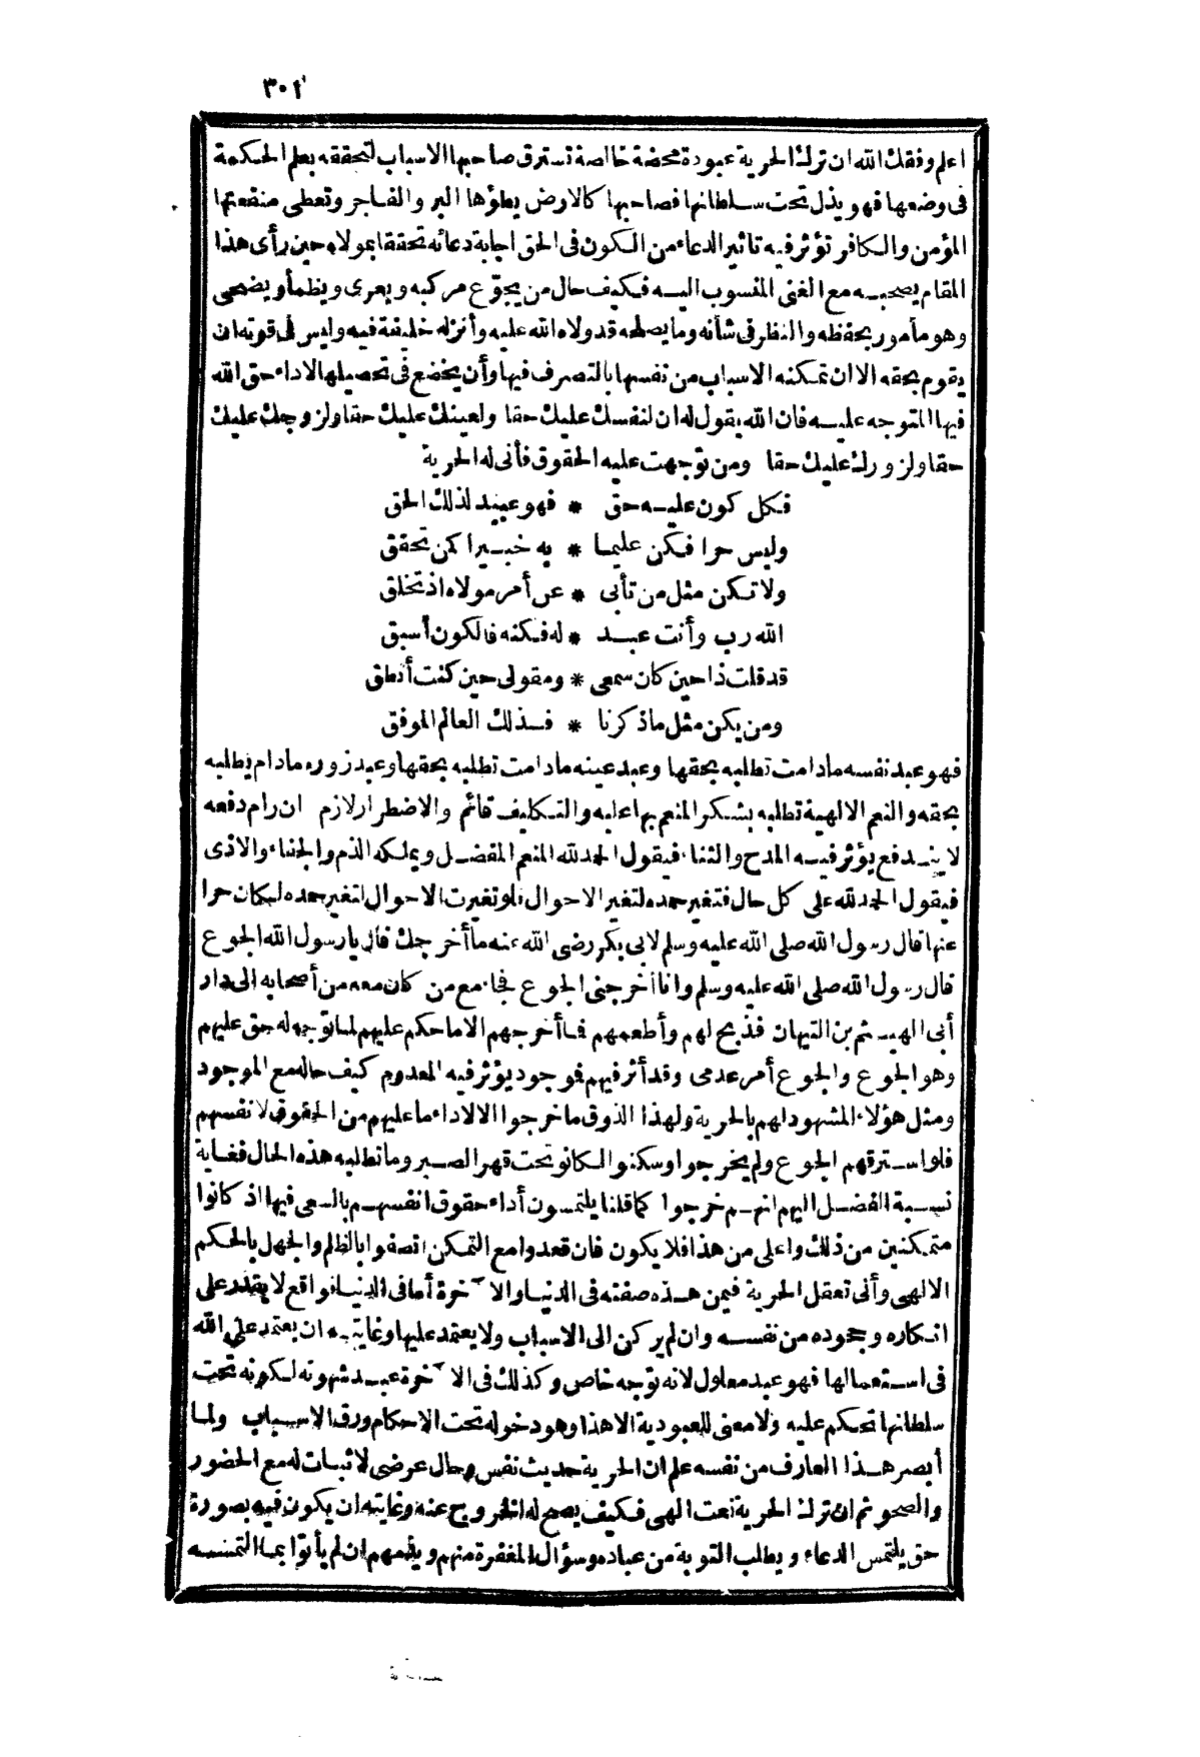 ٣٠٢
اعلم وفقك الله ان ترك الحرية عبودة محضة خالصة تسترق صاحبها الاسباب لتحققه بعلم الحكمة
فى وضعها فهو يذل تحت سلطانها فصاحبها كالارض يطؤها البر والفاجر وتعطى منفعتها
المؤمن والكافر تؤثر فيه تاثير الدعاء من الكون فى الحق اجابة دعائه تحققا بمولاه حين رأى هذا
المقام يصحبه مع الغنى المنسوب اليه فكيف حال من يجوّع مركبه ويعرى ويظمأ ويضحى
وهو مأمور بحفظه والنظر فى شأنه وما يصلحه قد ولاه الله عليه وأنزله خليفة فيه وليس فى قوته ان
يقوم بحقه الا ان تمكنه الاسباب من نفسها بالتصرف فيها وأن يخضع فى تحصيلها الاداء حق الله
فيها المتوجه عليه فان الله يقول له ان لنفسك عليك حقا ولعينك عليك حقا ولزوجك عليك
حقا ولزورك عليك حقا ومن توجهت عليه الحقوق فأنى له الحرية
فكل كون عليه حق * فهو عبيد لذلك الحق
وليس حرا فكن عليما * به خبيرا كمن تحقق
ولا تكن مثل من تأبى * عن أمر مولاه اذ تخلق
الله رب وأنت عبد * له فكنه فالكون أسبق
قد قلت ذا حين كان سمعى * ومقولى حين كنت أنطق
ومن يكن مثل ما ذكرنا * فذلك العالم الموفق
فهو عبد نفسه ما دامت تطلبه بحقها وعبد عينه ما دامت تطلبه بحقها وعبد زوره مادام يطلبه
بحقه والنعم الالهية تطلبه بشكر المنعم بها عليه والتكليف قائم والاضطرار لازم ان رام دفعه
لا يندفع يؤثر فيه المدح والثناء فيقول الحمد لله المنعم المفضل ويملكه الذم والجفاء والاذى
فيقول الحمد لله على كل حال فتغير حمده لتغير الاحوال فلو تغيرت الاحوال لتغير حمده لكان حرا
عنها قال رسول الله صلى الله عليه وسلم لابى بكر رضى الله عنه ما أخرجك قال يا رسول الله الجوع
قال رسول الله صلى الله عليه وسلم وانا أخرجنى الجوع فجاء مع من كان معه من أصحابه الى دار
أبى الهيثم بن التيهان فذبح لهم وأطعمهم فما أخرجهم الا ما حكم عليهم لما توجه له حق عليهم
وهو الجوع والجوع أمر عدمى وقد أثر فيهم فوجود يؤثر فيه المعدوم كيف حاله مع الموجود
ومثل هؤلاء المشهود لهم بالحرية ولهذا الذوق ما خرجوا الا لاداء ما عليهم من الحقوق لانفسهم
فلو استرقهم الجوع ولم يخرجوا وسكنوا لكانوا تحت قهر الصبر وما تطلبه هذه الحال فغاية
نسبة الفضل اليهم انهم خرجوا كما قلنا يلتمسون أداء حقوق انفسهم بالسعى فيها اذ كانوا
متمكنين من ذلك واعلى من هذا فلا يكون فان قعدوا مع التمكن اتصفوا بالظلم والجهل بالحكم
الالهى وأنى تعقل الحرية فيمن هذه صفته فى الدنيا والآخرة أما فى الدنيا فواقع لا يقدر على
انكاره وجحوده من نفسه وان لم يركن الى الاسباب ولا يعتمد عليها وغايته ان يعتمد على الله
فى استعمالها فهو عبد معلول لانه توجه خاص وكذلك فى الآخرة عبد شهوته لكونه تحت
سلطانها تحكم عليه ولا معنى للعبودية الا هذا وهو دخوله تحت الاحكام ورق الاسباب ولما
أبصر هذا العارف من نفسه علم ان الحرية حديث نفس وحال عرضى لاثبات له مع الحضور
والصحو ثم ان ترك الحرية نعت الهى فكيف يصح له الخروج عنه وغايته ان يكون فيه بصورة
حق يلتمس الدعاء ويطلب التوبة من عباده وسؤال المغفرة منهم ويذمهم ان لم يأتوا بما التمسه